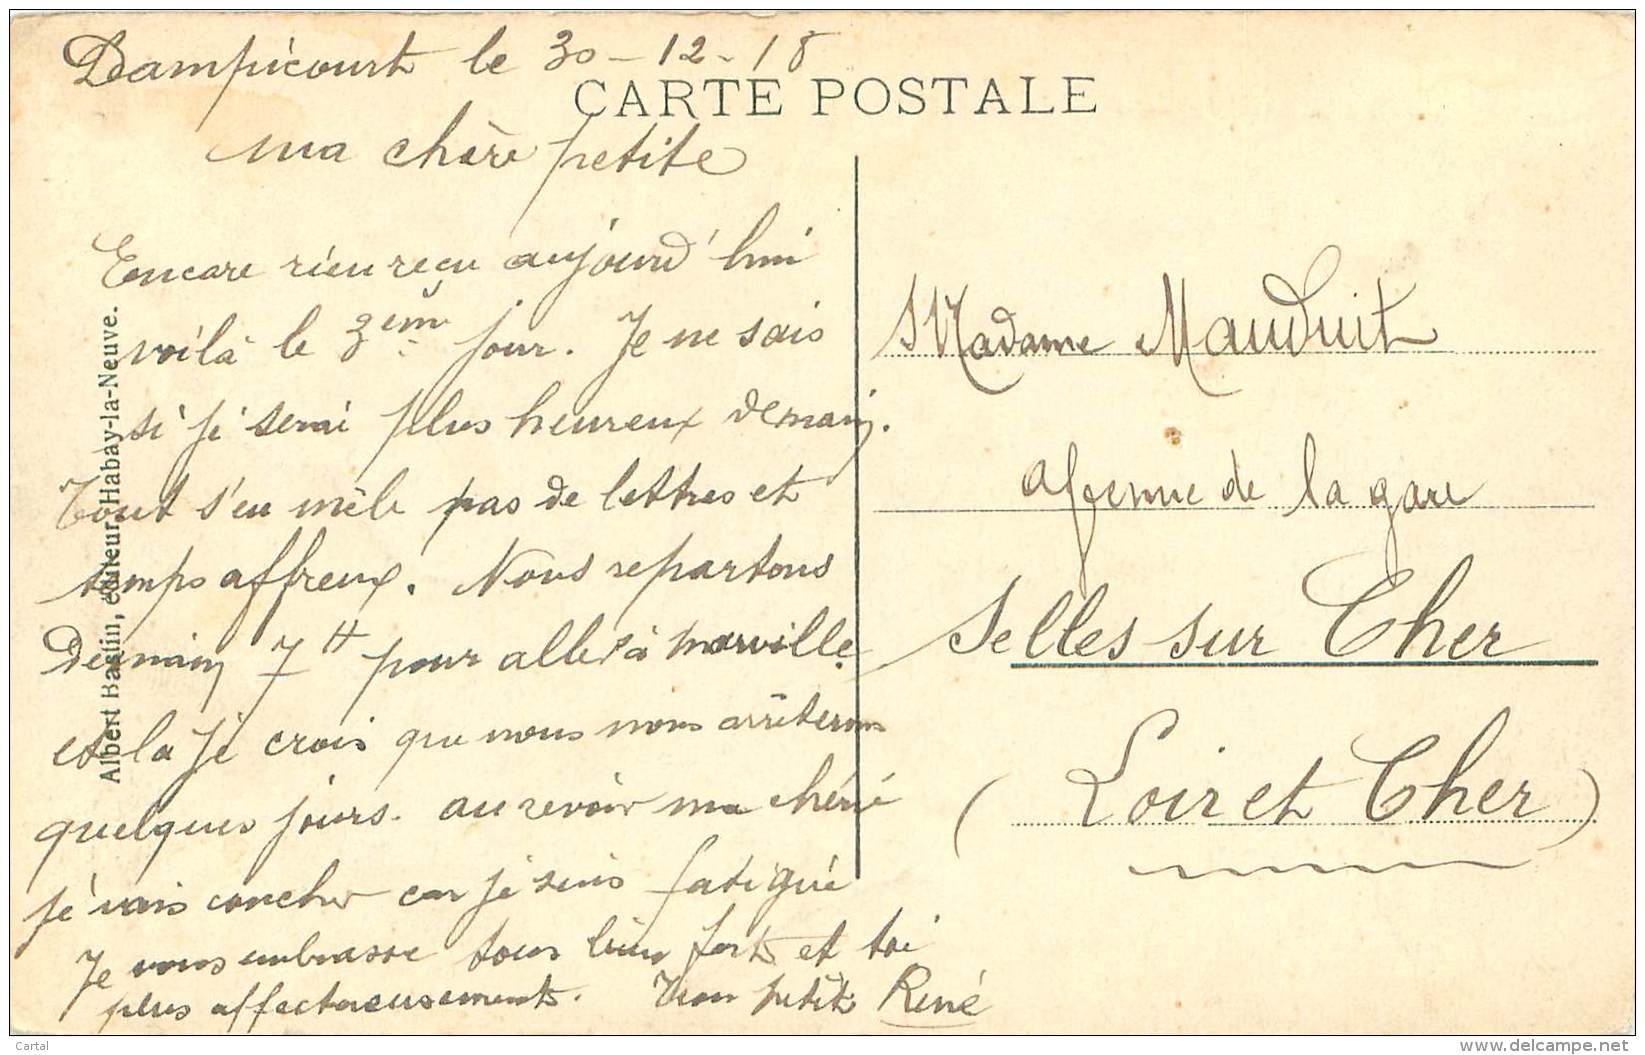 Dampicourt le 30-12-18
CARTE POSTALE
ma chère petite
Encore rien reçu aujourd'hui
voilà le 3ème jour. Je ne sais
si je serai plus heureux demain.
Tout s'en mêle pas de lettres et
temps affreux. Nous repartons
Demain 7H pour aller à Marville
et là je crois que nous nous arrêterons
quelques jours. au revoir ma chérie
je vais coucher car je suis fatigué
Je vous embrasse tous bien fort et toi
plus affectueusements. Ton petit René
Albert Baslin, éditeur, Habay-la-Neuve.
Madame Mauduit
de la gare
Selles sur Cher
(Loir et Cher)
Cartal
www.delcampe.net